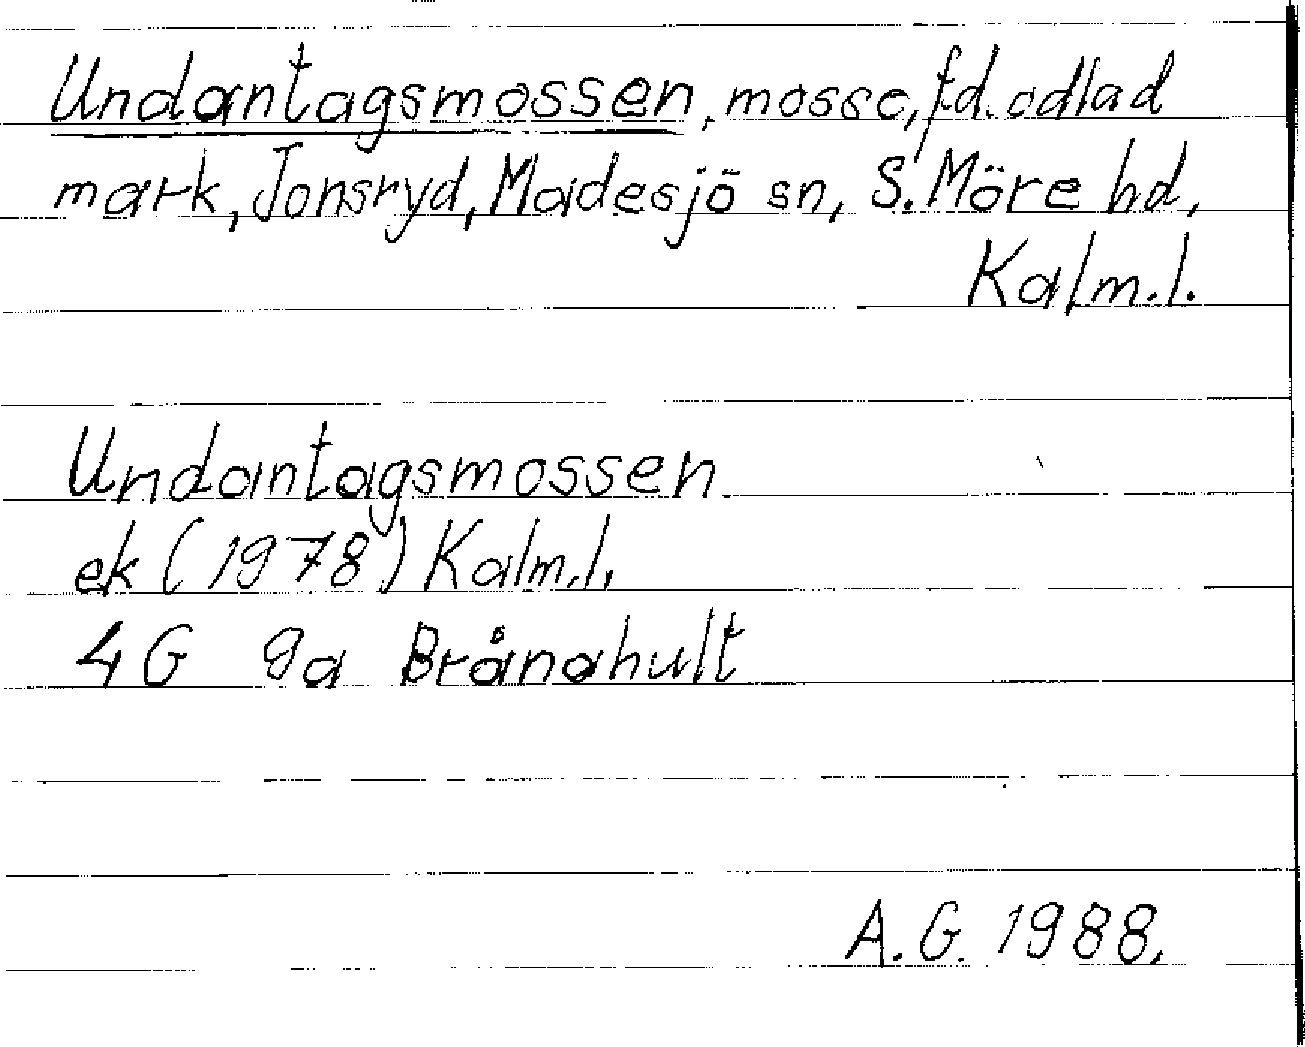 Undantagsmossen, mosse, f.d. odlad
mark, Jonsryd, Madesjö sn, S. Möre hd,
Kalm.l.
Undantagsmossen
ek (1978) Kalm.l.
4G 9a Brånahult
A.G. 1988.